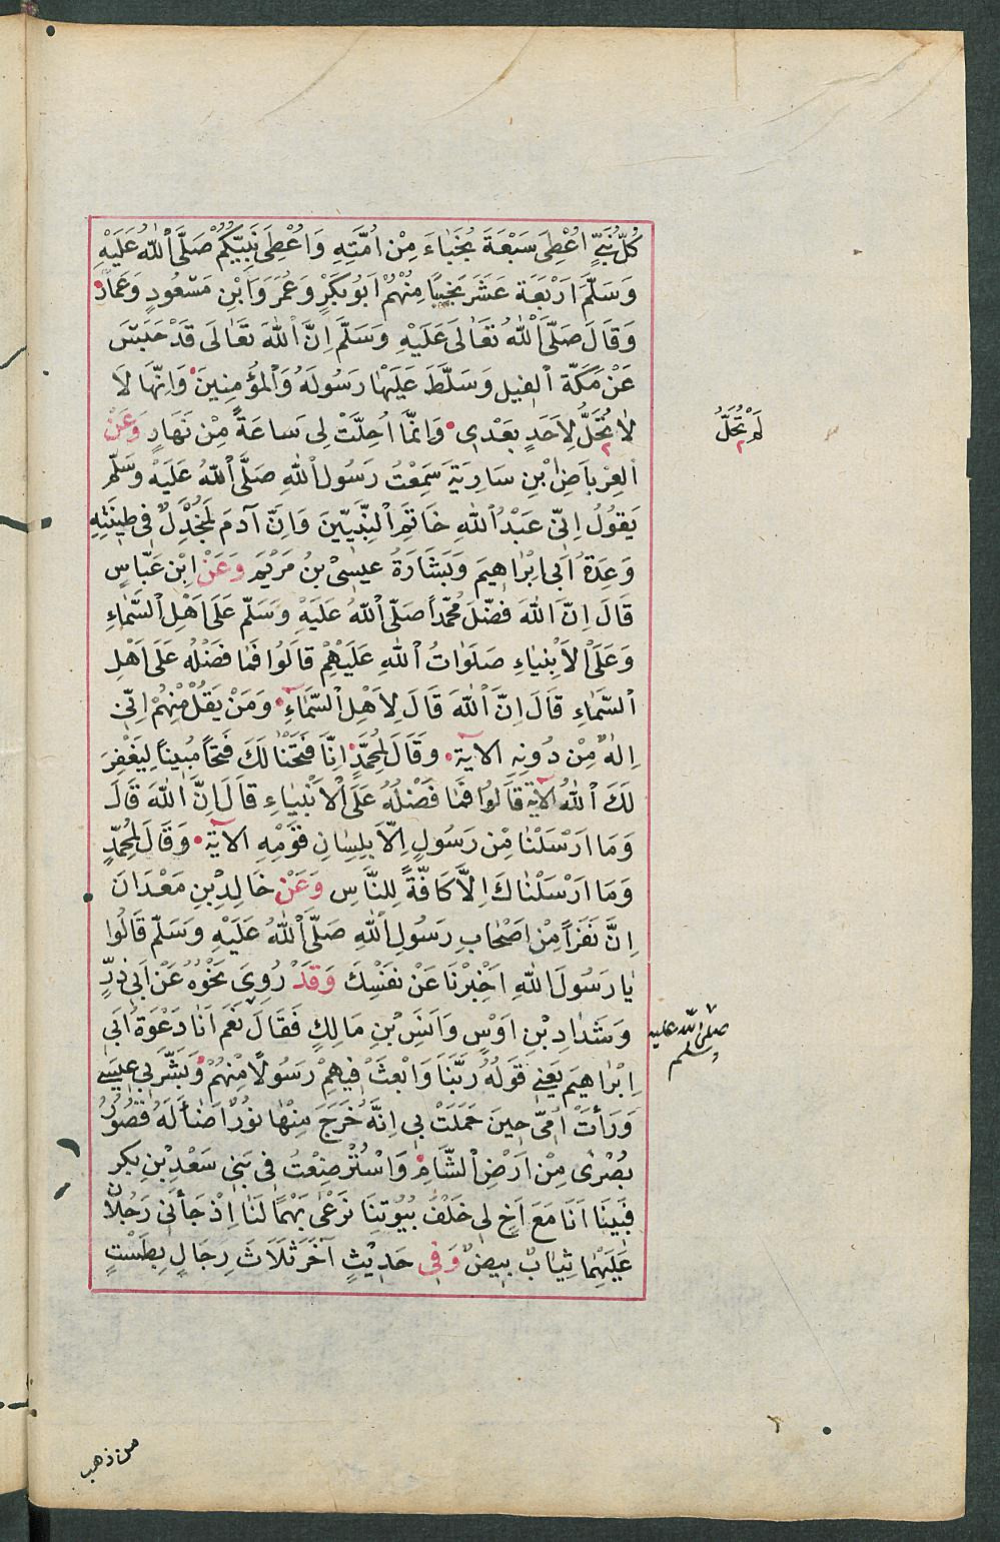 كُلُّ نَبِيٍّ اُعْطِيَ سَبْعَةَ نُجَبَاءَ مِنْ اُمَّتِهِ وَاُعْطِيَ نَبِيُّكُمْ صَلَّى اللّٰهُ عَلَيْهِ
وَسَلَّمَ اَرْبَعَةَ عَشَرَ نَجِيبًا مِنْهُمْ اَبُو بَكْرٍ وَعُمَرَ وَابْنِ مَسْعُودٍ وَعَمَّارٌ
وَقَالَ صَلَّى اللّٰهُ تَعَالَى عَلَيْهِ وَسَلَّمَ اِنَّ اللّٰهَ تَعَالَى قَدْ حَبَسَ
عَنْ مَكَّةَ الفِيلَ وَسَلَّطَ عَلَيْهَا رَسُولَهُ وَالْمُؤْمِنِينَ وَاِنَّهَا لَا
لَا تَحِلُّ لِاَحَدٍ بَعْدِي وَاِنَّمَا اُحِلَّتْ لِي سَاعَةً مِنْ نَهَارٍ وَعَنْ
لَمْ تَحُلَّ
العِرْبَاضِ بْنِ سَارِيَةَ سَمِعْتُ رَسُولَ اللّٰهِ صَلَّى اللّٰهُ عَلَيْهِ وَسَلَّمَ
يَقُولُ اِنِّي عَبْدُ اللّٰهِ خَاتَمَ النَّبِيِّينَ وَاِنَّ آدَمَ لَمُجَنْدِلٌ فِي طِينَتِهِ
وَعِدَةُ اَبِي اِبْرَاهِيمَ وَبَشَارَةُ عِيسَى بْنُ مَرْيَمَ وَعَنْ ابْنِ عَبَّاسٍ
قَالَ اِنَّ اللّٰهَ فَضَّلَ مُحَمَّدًا صَلَّى اللّٰهُ عَلَيْهِ وَسَلَّمَ عَلَى اَهْلِ السَّمَاءِ
وَعَلَى الْاَنْبِيَاءِ صَلَوَاتُ اللّٰهِ عَلَيْهِمْ قَالُوا فَمَا فَضْلُهُ عَلَى اَهْلِ
السَّمَاءِ قَالَ اِنَّ اللّٰهَ قَالَ لِاَهْلِ السَّمَاءِ وَمَنْ يَقُلْ مِنْهُمْ اِنِّي
اِلٰهٌ مِنْ دُونِهِ الاية وَقَالَ لِمُحَمَّدٍ اِنَّا فَتَحْنَا لَكَ فَتْحًا مُبِينًا لِيَغْفِرَ
لَكَ اللّٰهُ الاية قَالُوا فَمَا فَضْلُهُ عَلَى الْاَنْبِيَاءِ قَالَ اِنَّ اللّٰهَ قَالَ
وَمَا اَرْسَلْنَا مِنْ رَسُولٍ اِلَّا بِلِسَانِ قَوْمِهِ الاية وَقَالَ لِمُحَمَّدٍ
وَمَا اَرْسَلْنَاكَ اِلَّا كَافَّةً لِلنَّاسِ وَعَنْ خَالِدِ بْنِ مَعْدَانَ
اِنَّ نَفَرًا مِنْ اَصْحَابِ رَسُولِ اللّٰهِ صَلَّى اللّٰهُ عَلَيْهِ وَسَلَّمَ قَالُوا
يَا رَسُولَ اللّٰهِ اَخْبِرْنَا عَنْ نَفْسِكَ وَقَدْ رُوِيَ نَحْوُهُ عَنْ اَبِي ذَرٍّ
وَشَدَّادِ بْنِ اَوْسٍ وَاَنَسِ بْنِ مَالِكٍ فَقَالَ نَعَمْ اَنَا دَعْوَةُ اَبِي
صلى الله عليه وسلم
اِبْرَاهِيمَ يَعْنِي قَوْلُهُ رَبَّنَا وَابْعَثْ فِيهِمْ رَسُولًا مِنْهُمْ وَبَشَّرَ بِي عِيسَى
وَرَأَتْ اُمِّي حِينَ حَمَلَتْ بِي اِنَّهُ خَرَجَ مِنْهَا نُورٌ اَضَاۤءَ لَهُ قُصُورُ
بُصْرَى مِنْ اَرْضِ الشَّامِ وَاسْتُرْضِعْتُ فِي بَنِي سَعْدِ بْنِ بَكْرٍ
فَبَيْنَا اَنَا مَعَ اَخٍ لِي خَلْفَ بُيُوتِنَا نَرْعَى بَهْمًا لَنَا اِذْ جَاۤءَنِي رَجُلَانِ
عَلَيْهِمَا ثِيَابٌ بِيضٌ وَفِي حَدِيْثٍ آخَرَ ثَلَاثَ رِجَالٍ بِطَسْتٍ
من ذهب